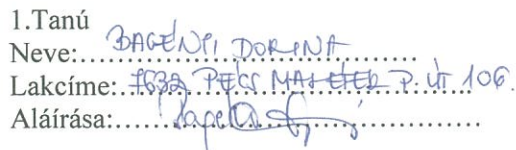 1.Tanú
Neve: BAGÉNYI DORINA
Lakcíme: 7632 PÉCS MALÉTER P. ÚT 106.
Aláírása: